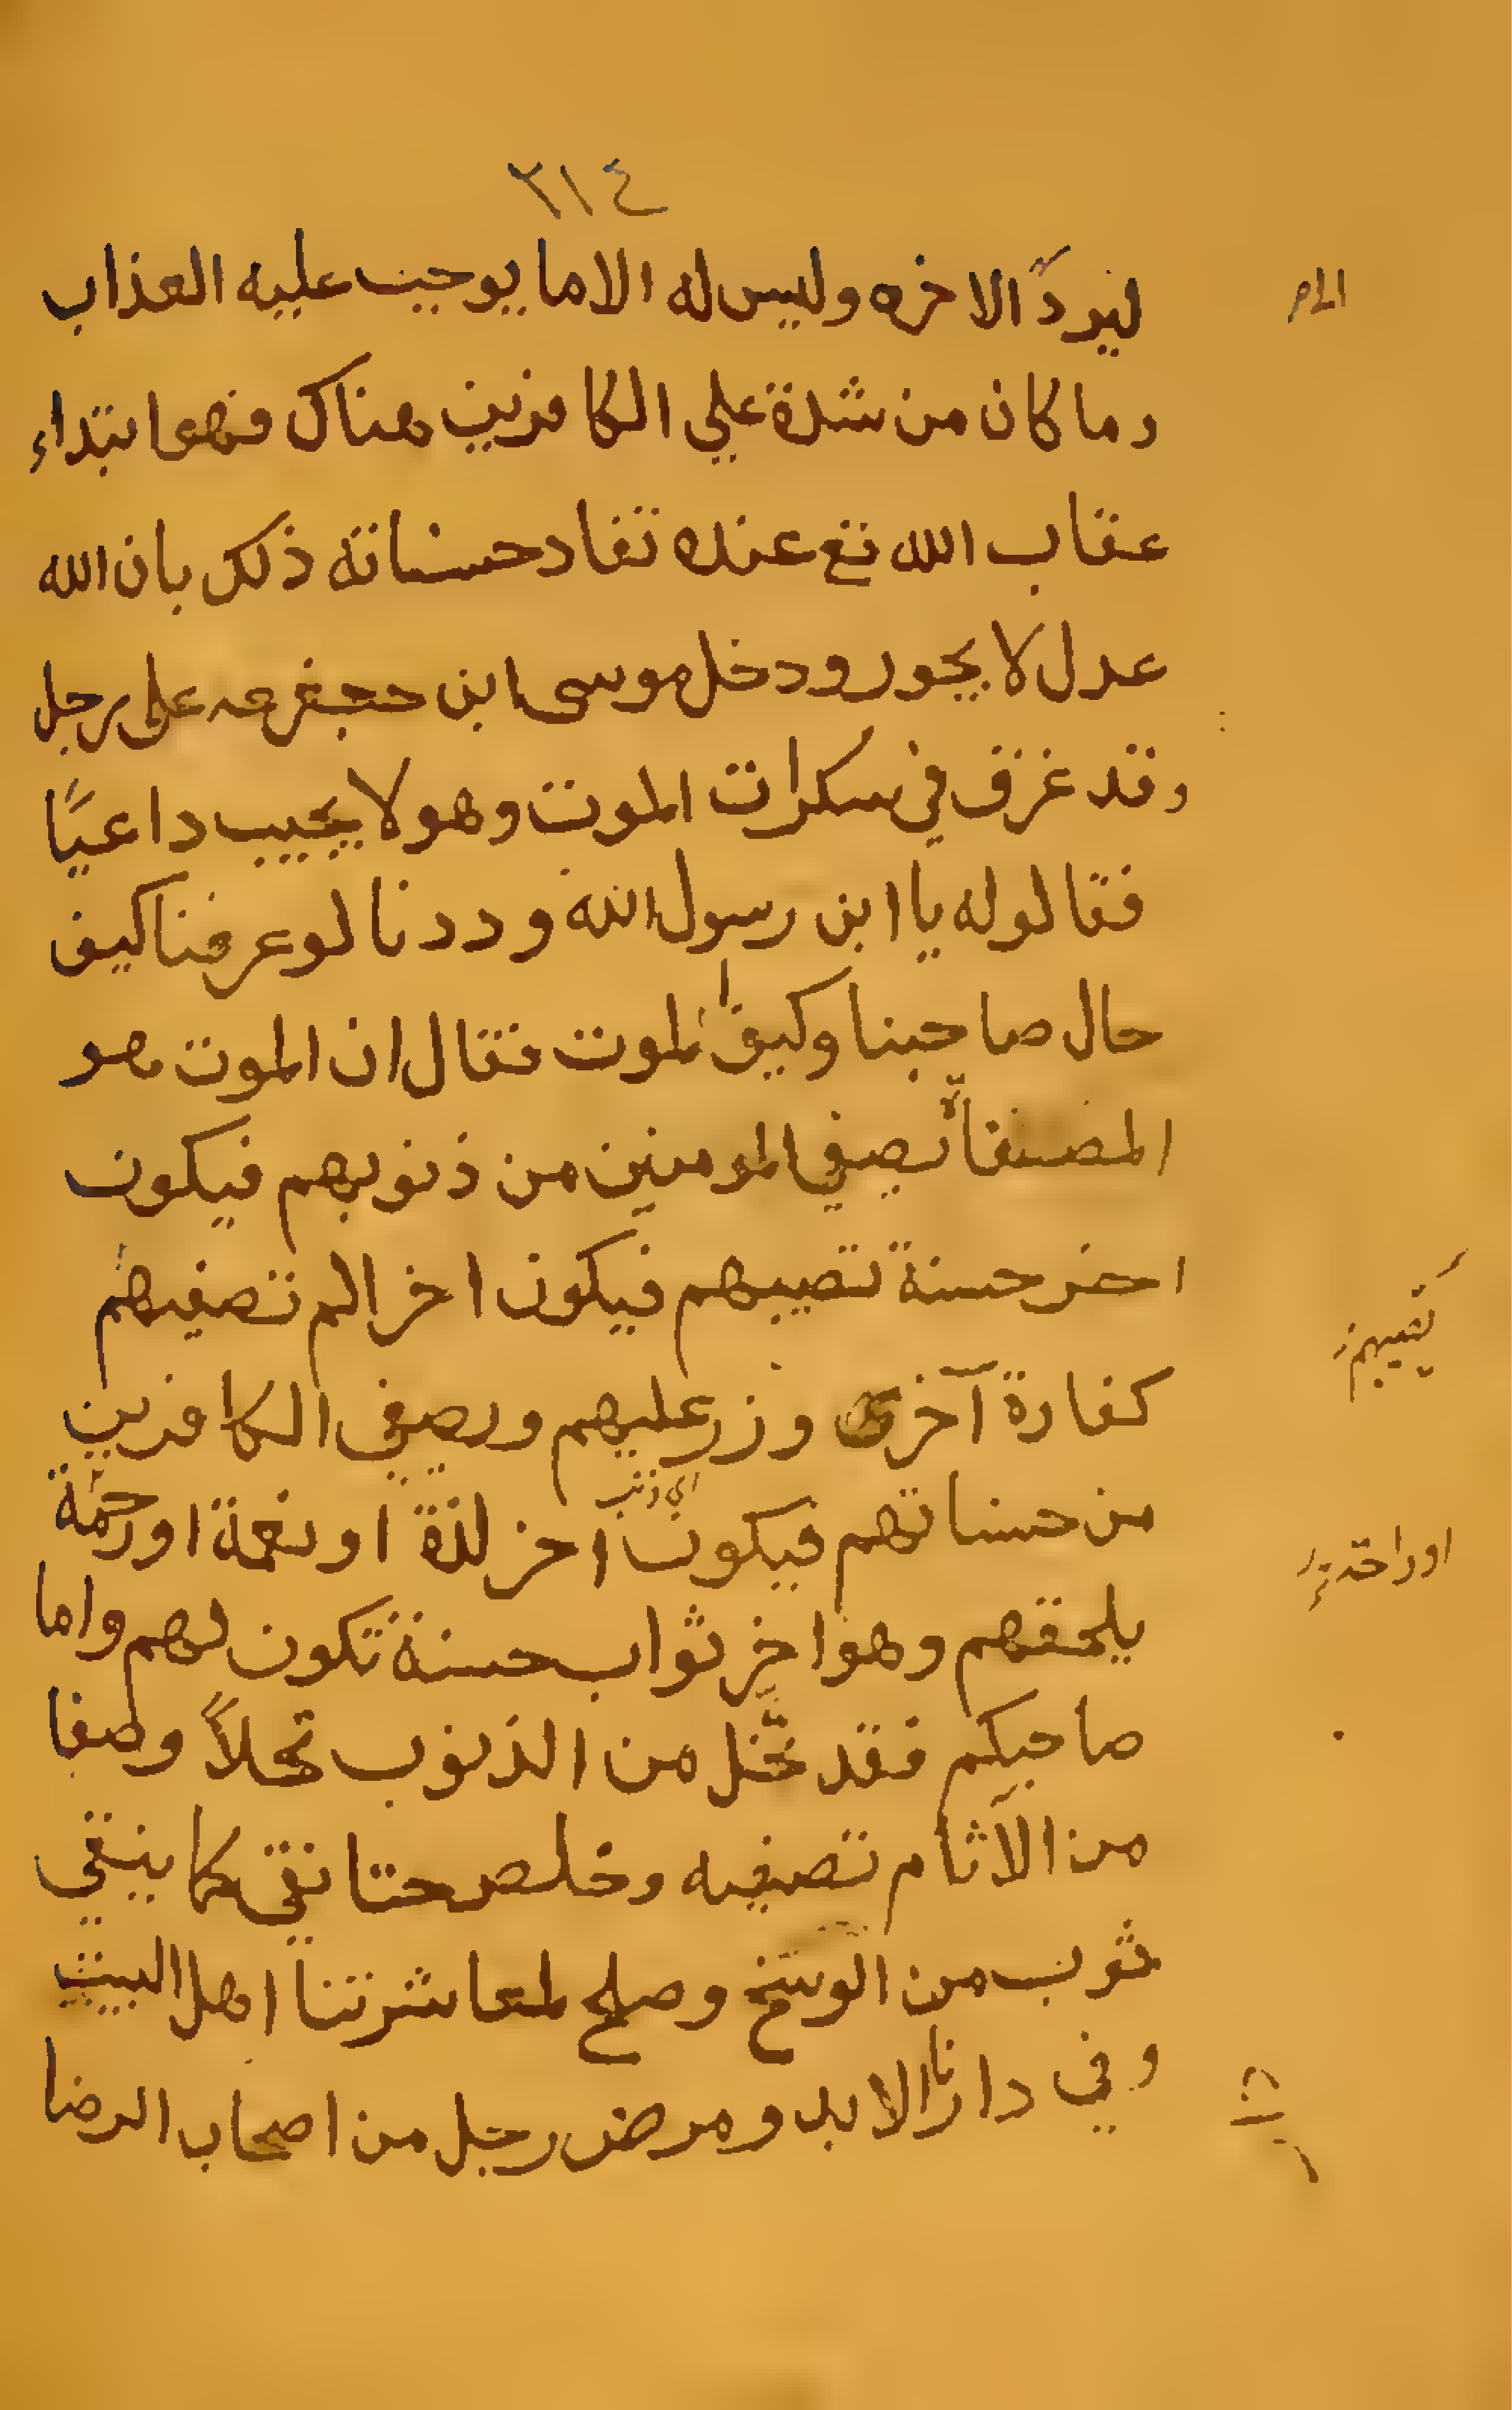 ٣١٤
ليردّ الاخره وليس له الا ما يوجب عليه العذاب
وما كان من شدة علي الكافرين هناك فهو ابتداء
عقاب الله تع عنده نفاد حسناته ذلك بان الله
عدل لا يجور ودخل موسى ابن جعفر عه على رجل
وقد غرف في سكرات الموت وهو لا يجيب داعيًا
فقالوا له يا ابن رسول الله وددنا لو عرفنا كيف
حال صاحبنا وكيف الموت فقال ان الموت هو
المصفا يصفي المومنين من ذنوبهم فيكون
اخر حسنة تصيبهم فيكون اخر الم تصفيهم
كفارة آخرى وزر عليهم ويصفي الكافرين
من حسناتهم فيكون اخر لذة او نعمة او رحمة
يلحقهم وهو اخر ثواب حسنة تكون لهم واما
صاحبكم فقد نخّل من الذنوب نخلاً وصفا
من الآثام تصفيه وخلص حتا نقي كما ينقي
ثوب من الوسخ وصلح لمعاشرتنا اهل البيت
وفي دارنا الابد ومرض رجل من اصحاب الرضا
او راحة